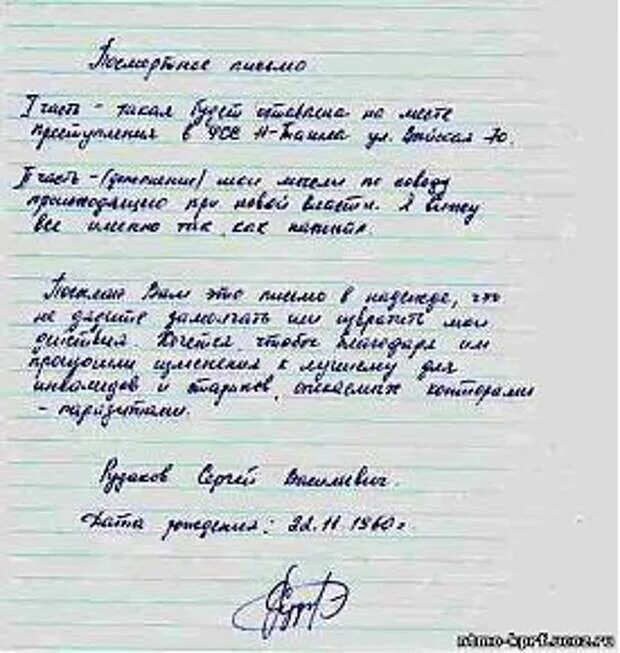 Посмертное письмо
I часть - такая будет оставлена на месте
преступления в ФСС Н-Тагила ул. Вийская 70.
II часть - (дополнение) мои мысли по поводу
происходящего при новой власти. Я вижу
все именно так, как написал.
Посылаю Вам это письмо в надежде, что
не дадите замолчать или извратить мои
действия. Хочется, чтобы благодаря им
произошли изменения к лучшему для
инвалидов и стариков, опекаемых конторами
- паразитами.
Рудаков Сергей Васильевич.
Дата рождения: 22.11.1960г
ntmo-kprf.ucoz.ru